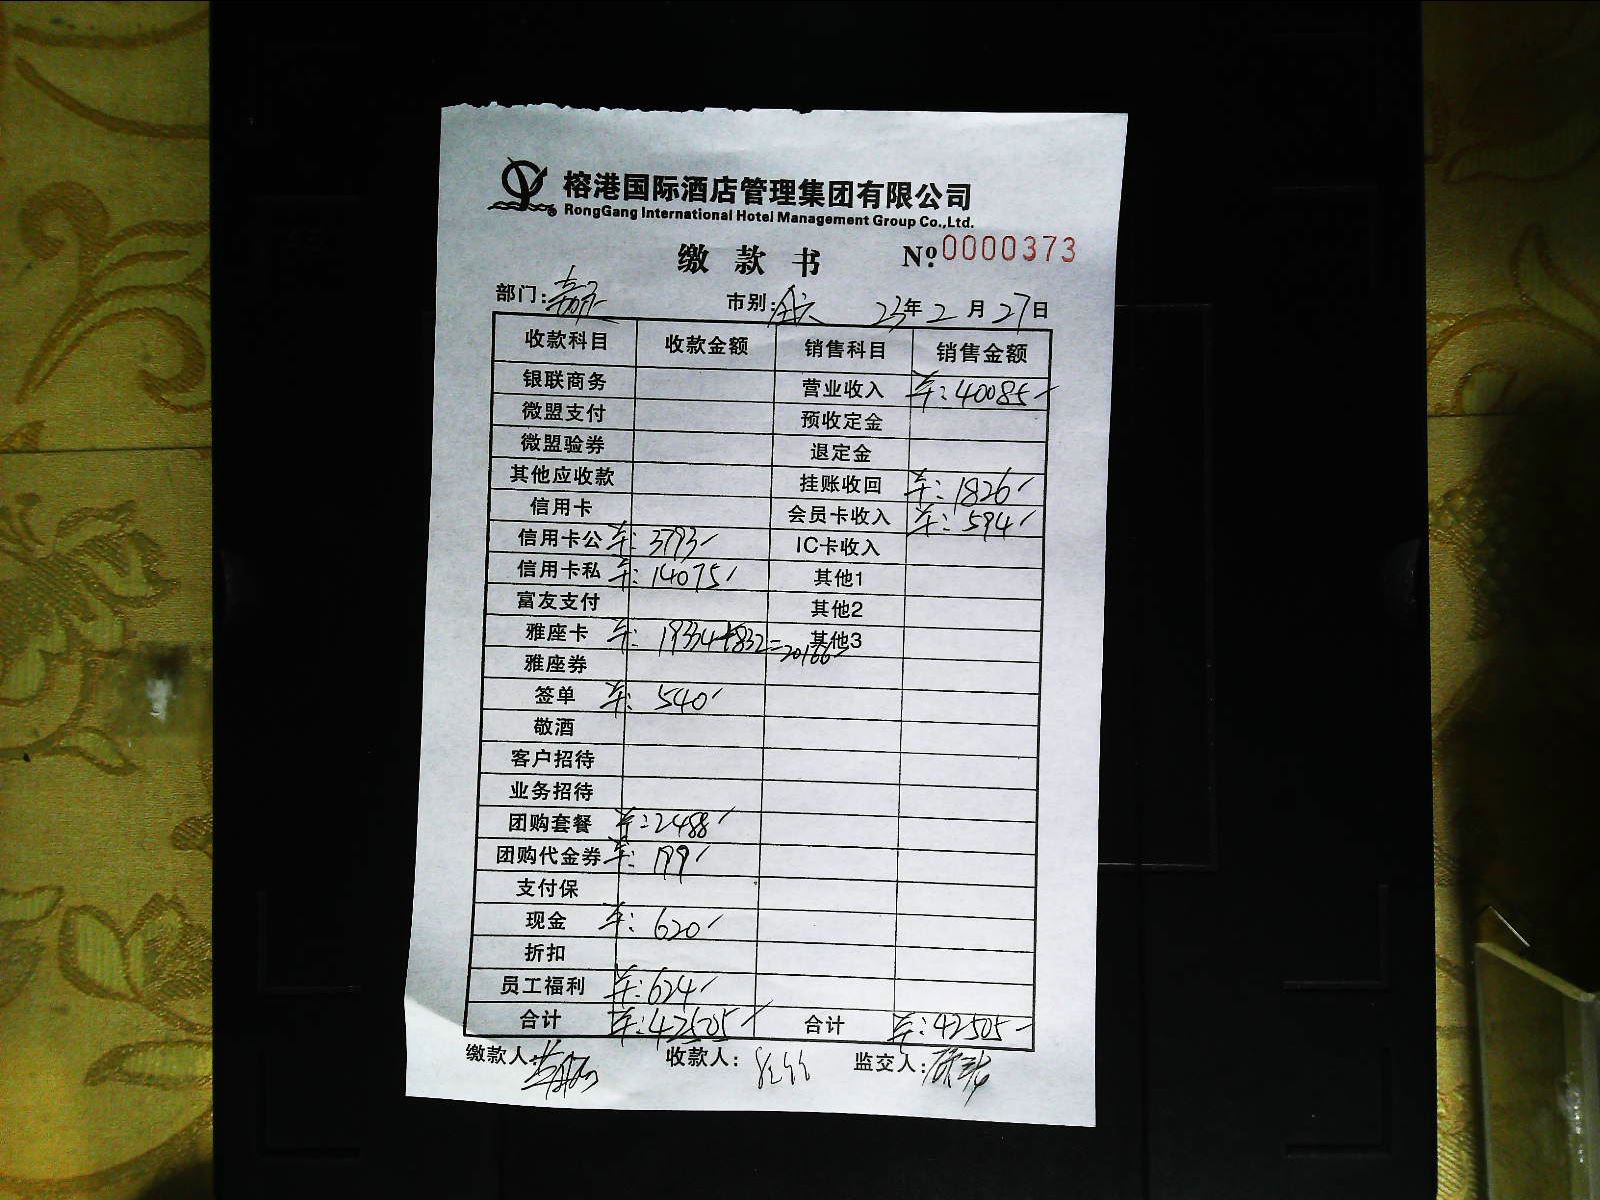 榕港国际酒店管理集团有限公司
RongGang International Hotel Management Group Co.,Ltd.
缴款书 № 0000373
部门: 市别: 23年2月27日
收款科目 收款金额 销售科目 销售金额
银联商务 营业收入 ¥:40085
微盟支付 预收定金
微盟验券 退定金
其他应收款 挂账收回 ¥:1826
信用卡 会员卡收入 ¥:594
信用卡公 ¥:3793 IC卡收入
信用卡私 ¥:14075 其他1
富友支付 其他2
雅座卡 ¥:19334+832=20166 其他3
雅座券
签单 ¥:540
敬酒
客户招待
业务招待
团购套餐 ¥:2488
团购代金券 ¥:199
支付保
现金 ¥:620
折扣
员工福利 ¥:624
合计 ¥:42505 合计 ¥:42505
缴款人: 收款人: 监交人: